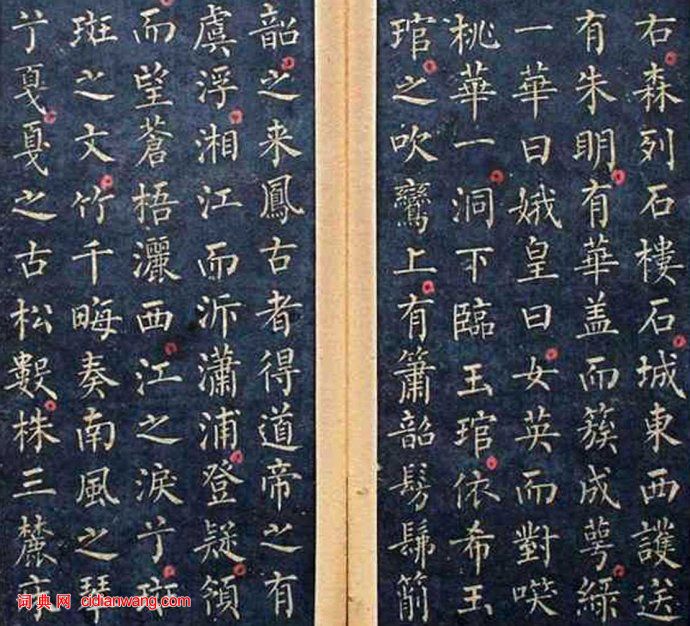 右森列石樓石城東西護送
有朱明有華盖而簇成萼綠
一華曰娥皇曰女英而對咲
桃華一洞下臨玉琯依希玉
琯之吹鸞上有簫韶髣髴簫
韶之来鳳古者得道帝之有
虞浮湘江而泝瀟浦登疑領
而望蒼梧灑西江之淚于
斑之文竹千畮奏南風之琴
于戛戛之古松數株三麓
词典网 cidianwang.com